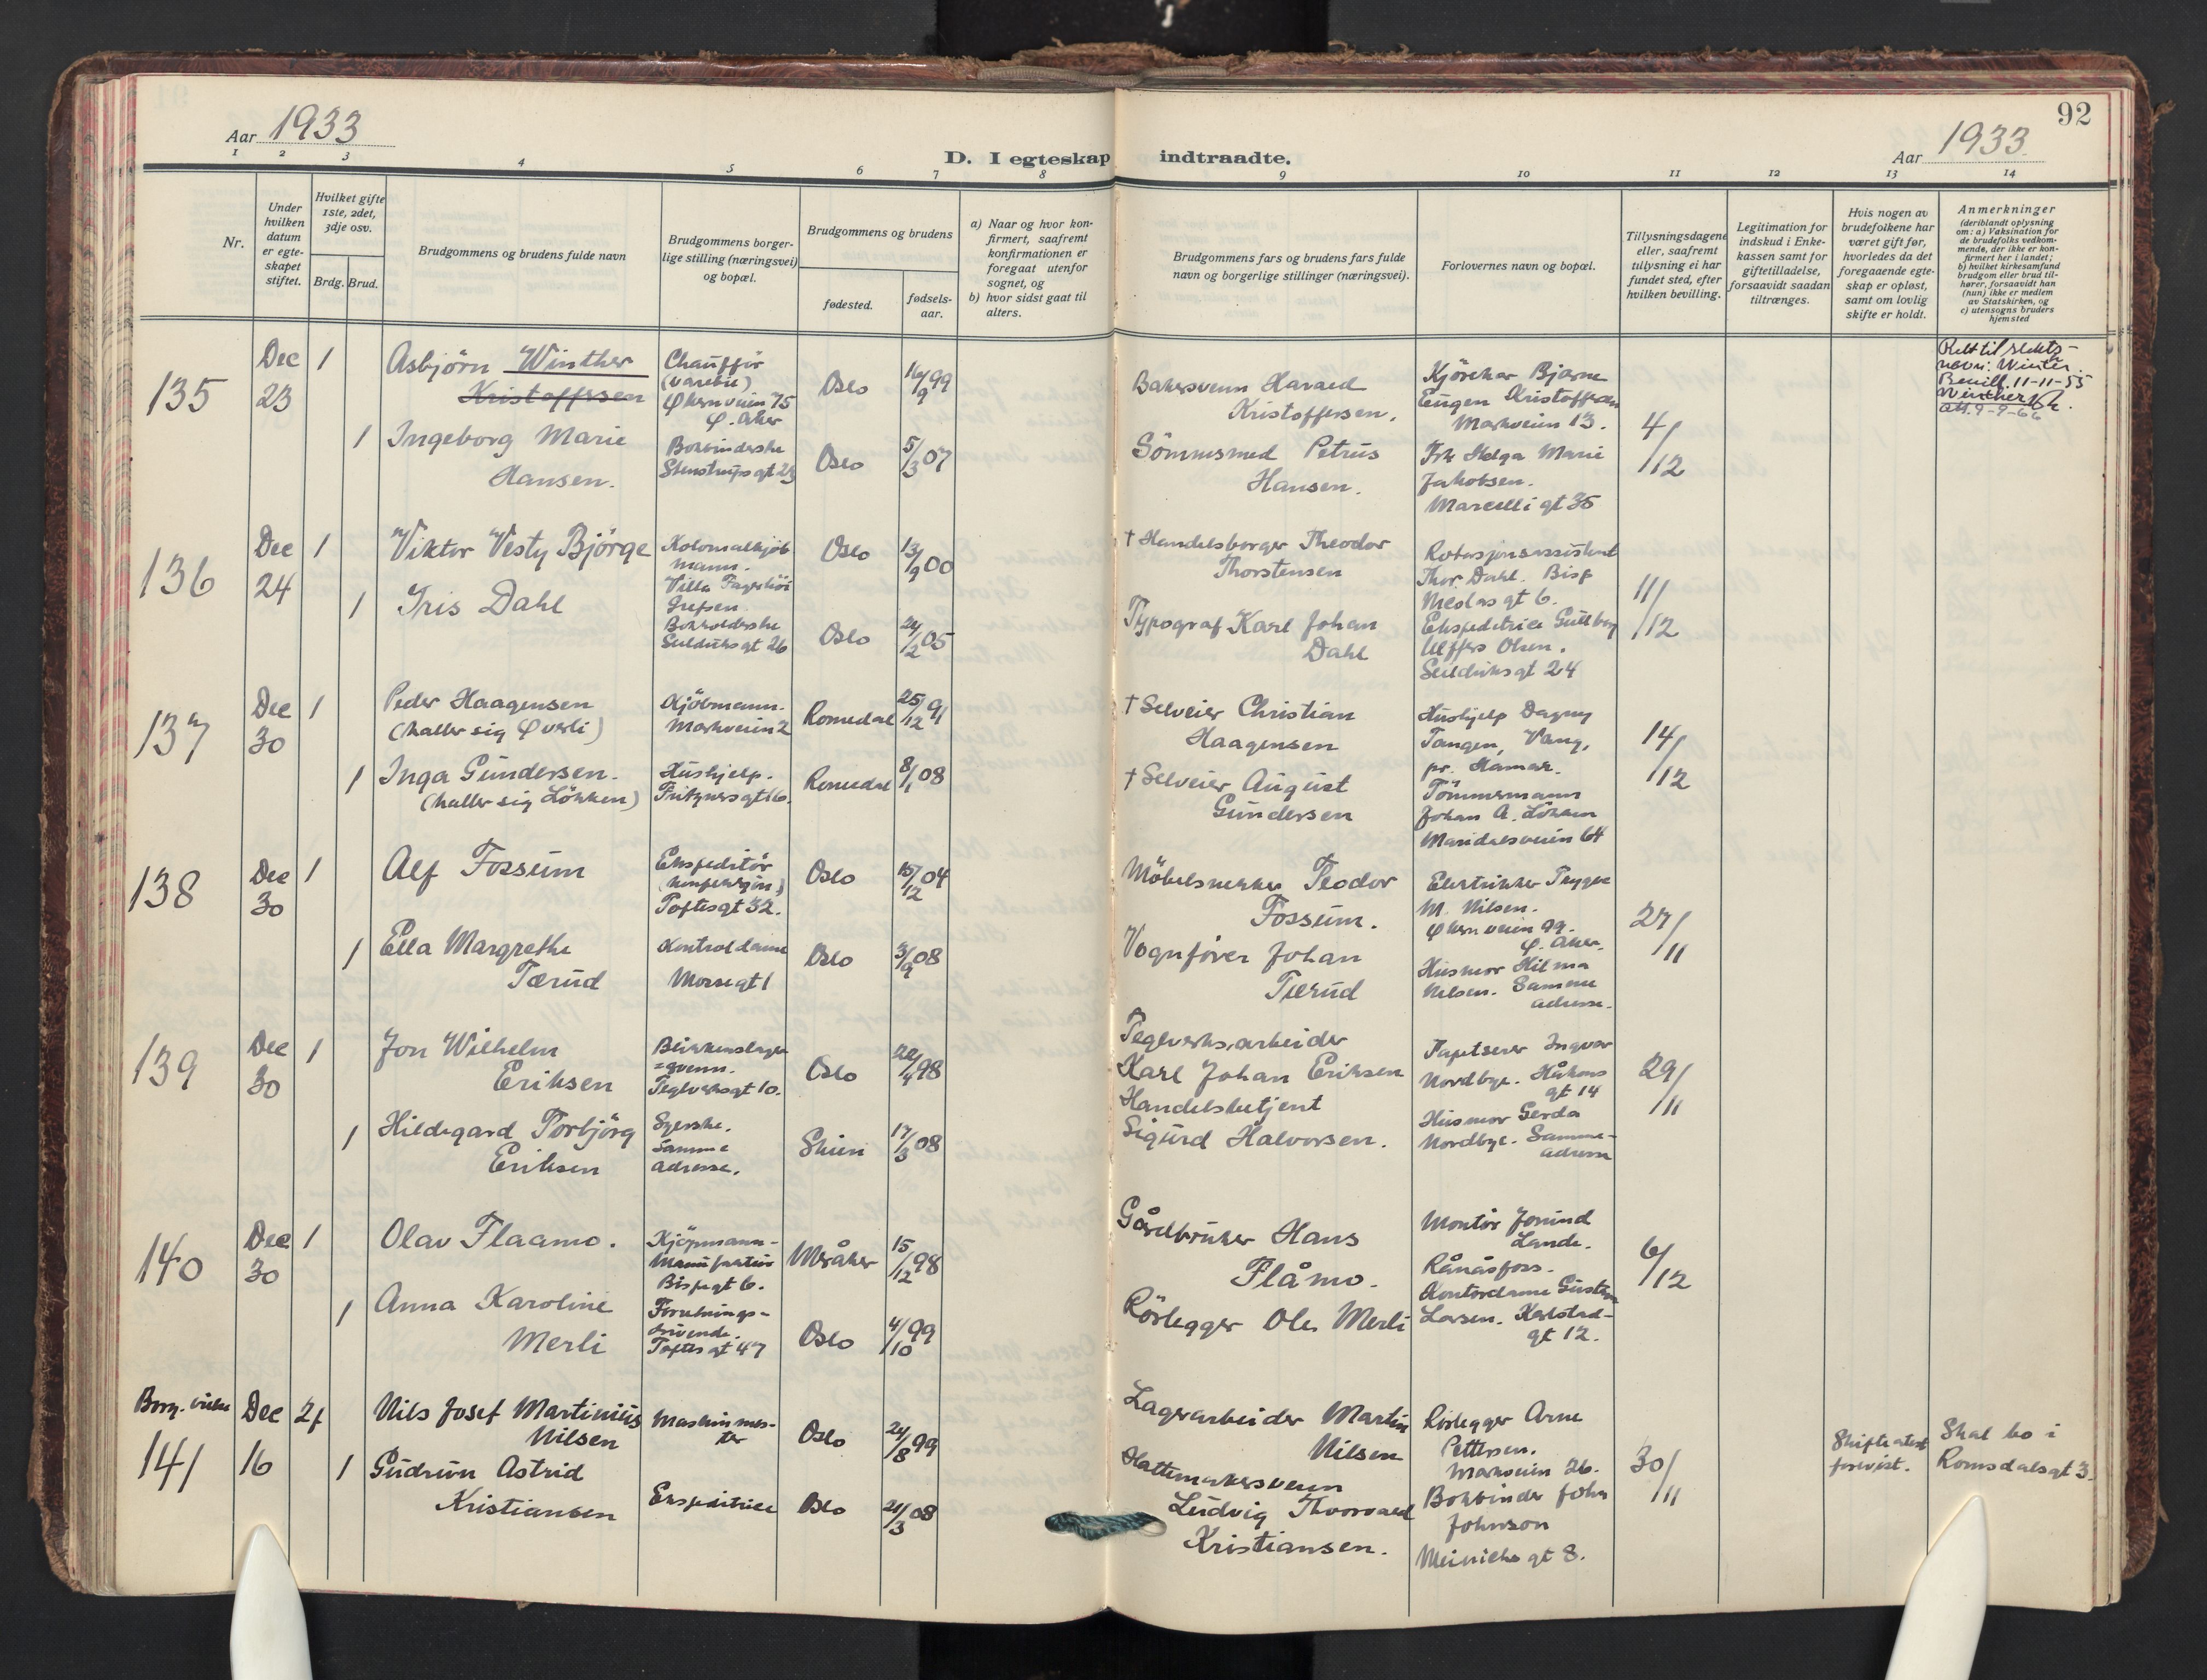 92
Aar 1933
D. I egteskap indtraadte.
Aar 1933.
1 2 3 4 5 6 7 8 9 10 11 12 13 14
Nr.
Under
hvilken
datum
er egte-
skapet
stiftet.
Hvilket gifte
1ste, 2det,
3dje osv.
Brdg. Brud.
Brudgommens og brudens fulde navn
Brudgommens borger-
lige stilling (næringsvei)
og bopæl.
Brudgommens og brudens
fødested.
fødsels-
aar.
a) Naar og hvor kon-
firmert, saafremt
konfirmationen er
foregaat utenfor
sognet, og
b) hvor sidst gaat til
alters.
Brudgommens fars og brudens fars fulde
navn og borgerlige stillinger (næringsvei).
Forlovernes navn og bopæl.
Tillysningsdagene
eller, saafremt
tillysning ei har
fundet sted, efter
hvilken bevilling.
Legitimation for
indskud i Enke-
kassen samt for
giftetilladelse,
forsaavidt saadan
tiltrænges.
Hvis nogen av
brudefolkene har
været gift før,
hvorledes da det
foregaaende egte-
skap er opløst,
samt om lovlig
skifte er holdt.
Anmerkninger
(deriblandt oplysning
om: a) Vaksination for
de brudefolks vedkom-
mende, der ikke er kon-
firmert her i landet;
b) hvilket kirkesamfund
brudgom eller brud til-
hører, forsaavidt han
(hun) ikke er medlem
av Statskirken, og
c) utensogns bruders
hjemsted
135
Dec 23
1
Asbjörn Winther
Kristoffersen
Chaufför
(varebil)
Økernveien 75
Ø. Aker
Oslo
16/9 99
Bakersvenn Harald
Kristoffersen.
Kjörekar Bjarne
Eugen Kristoffersen
Markveien 13.
4/12
Rett til slekts-
navn: Winter.
Bevill. 11-11-55
Winther
att. 9-9-66
1
Ingeborg Marie
Hansen.
Bokbinderske
Stenstrupsgt 23
Oslo
5/3 07
Sömmsmed Petrus
Hansen.
Frk Helga Marie
Jakobsen.
Marselli gt 35
136
Dec 24
1
Viktor Vesty Björge
Kolonialkjöb
mann.
Villa Fagerlöi
Grefsen
Oslo
13/9 00
† Handelsborger Theodor
Thorstensen
Rotasjonsassistent
Thor Dahl. Bisp
Nicolas gt 6.
11/12
1
Iris Dahl
Bokholderske
Seilduks gt 26
Oslo
24/2 05
Typograf Karl Johan
Dahl
Ekspeditrice Gullborg
Ulffers Olsen.
Seilduksgt 24
137
Dec 30
1
Peder Haagensen
(kaller sig Øverli)
Kjöbmann.
Markveien 2
Romedal
25/12 91
† Selveier Christian
Haagensen
Hushjelp Dagny
Tangen, Vang,
pr. Hamar.
14/12
1
Inga Gundersen.
(kaller sig Lökken)
Hushjelp.
Fritznersgt 16.
Romedal
8/1 08
† Selveier August
Gundersen
Tömmermann
Johan A. Lökken
Maridalsveien 64
138
Dec 30
1
Alf Fossum
Ekspeditör
(konfeksjon)
Toftesgt 32.
Oslo
15/12 04
Möbelsnekker Teodor
Fossum.
Elektriker Trygve
M. Nilsen.
Økernveien 99.
Ø. Aker.
27/11
1
Ella Margrethe
Tærud
Kontroldame
Mossegt 1
Oslo
3/9 08
Vognförer Johan
Tærud
Husmor Hilma
Nilsen. Samme
adresse.
139
Dec 30
1
Jon Wilhelm
Eriksen
Blikkenslager
=svenn.
Teglverksgt 10.
Oslo
22/4 98
Teglverks.arbeider
Karl Johan Eriksen
Tapetserer Ingvar
Nordbye. Håkons
gt 14
29/11
1
Hildegard Torbjörg
Eriksen
Syerske.
Samme
adresse.
Skien
17/3 08
Handelsbetjent
Sigurd Halvorsen.
Husmor Gerda
Nordbye. Samme-
adresse
140
Dec. 30
1
Olav Flaamo.
Kjöpmann-
Manufaktur
Bispegt 6.
Meråker
15/12 98
Gårdbruker Hans
Flåmo.
Montör Jorund
Lande.
Rånåsfoss.
6/12
1
Anna Karoline
Merli
Forretnings-
drivende.
Toftes gt 47
Oslo
4/10 99
Rörlegger Ole Merli
Kontordame Gustava
Larsen. Karlstad-
gt 12.
Borg. vielse
141
Dec 16
2f
Nils Josef Martinius
Nilsen
Maskinmes-
ter
Oslo
24/8 99
Lagerarbeider Martin
Nilsen
Rörlegger Arne
Pettersen.
Markveien 26.
30/11
Skifteatest
forevist.
Skal bo i
Romsdalsgt 3.
1
Gudrun Astrid
Kristiansen
Ekspeditrice
Oslo
21/3 08
Hattemakersvenn
Ludvig Thoorvald
Kristiansen.
Bokbinder John
Johnson
Meinichs gt 8.